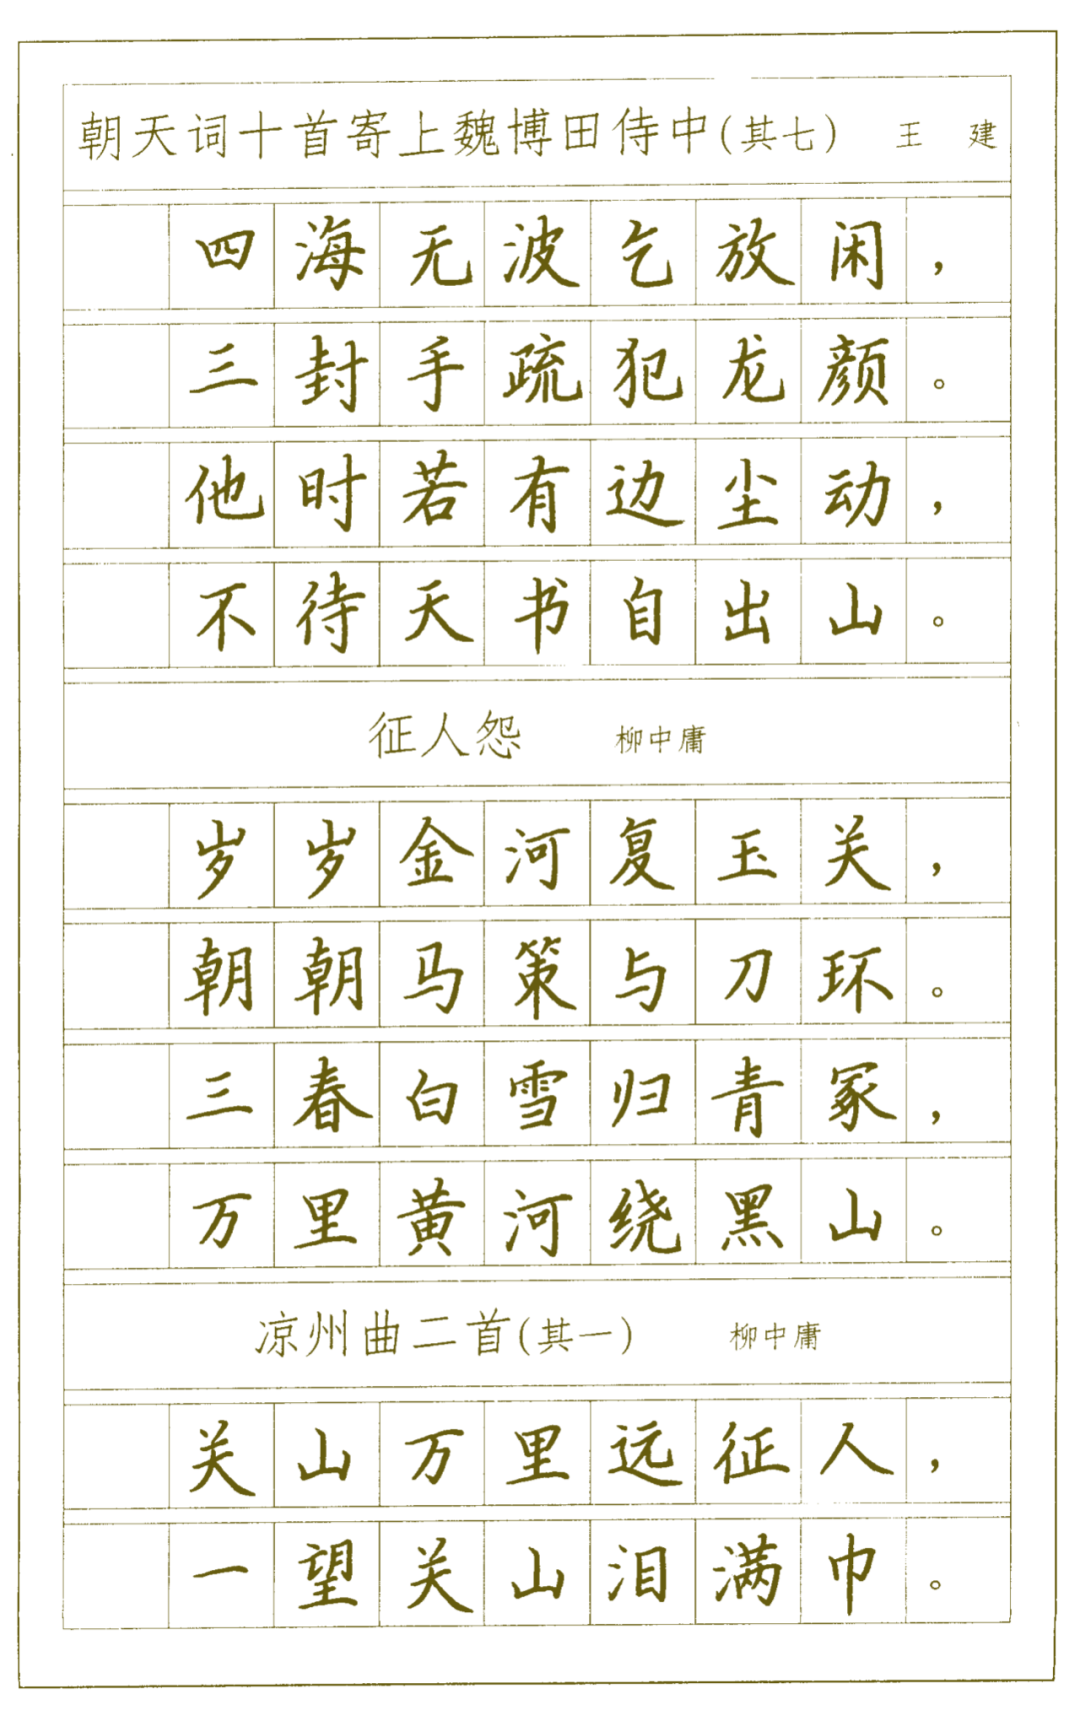 朝天词十首寄上魏博田侍中(其七) 王建
四海无波乞放闲，
三封手疏犯龙颜。
他时若有边尘动，
不待天书自出山。
征人怨 柳中庸
岁岁金河复玉关，
朝朝马策与刀环。
三春白雪归青冢，
万里黄河绕黑山。
凉州曲二首(其一) 柳中庸
关山万里远征人，
一望关山泪满巾。